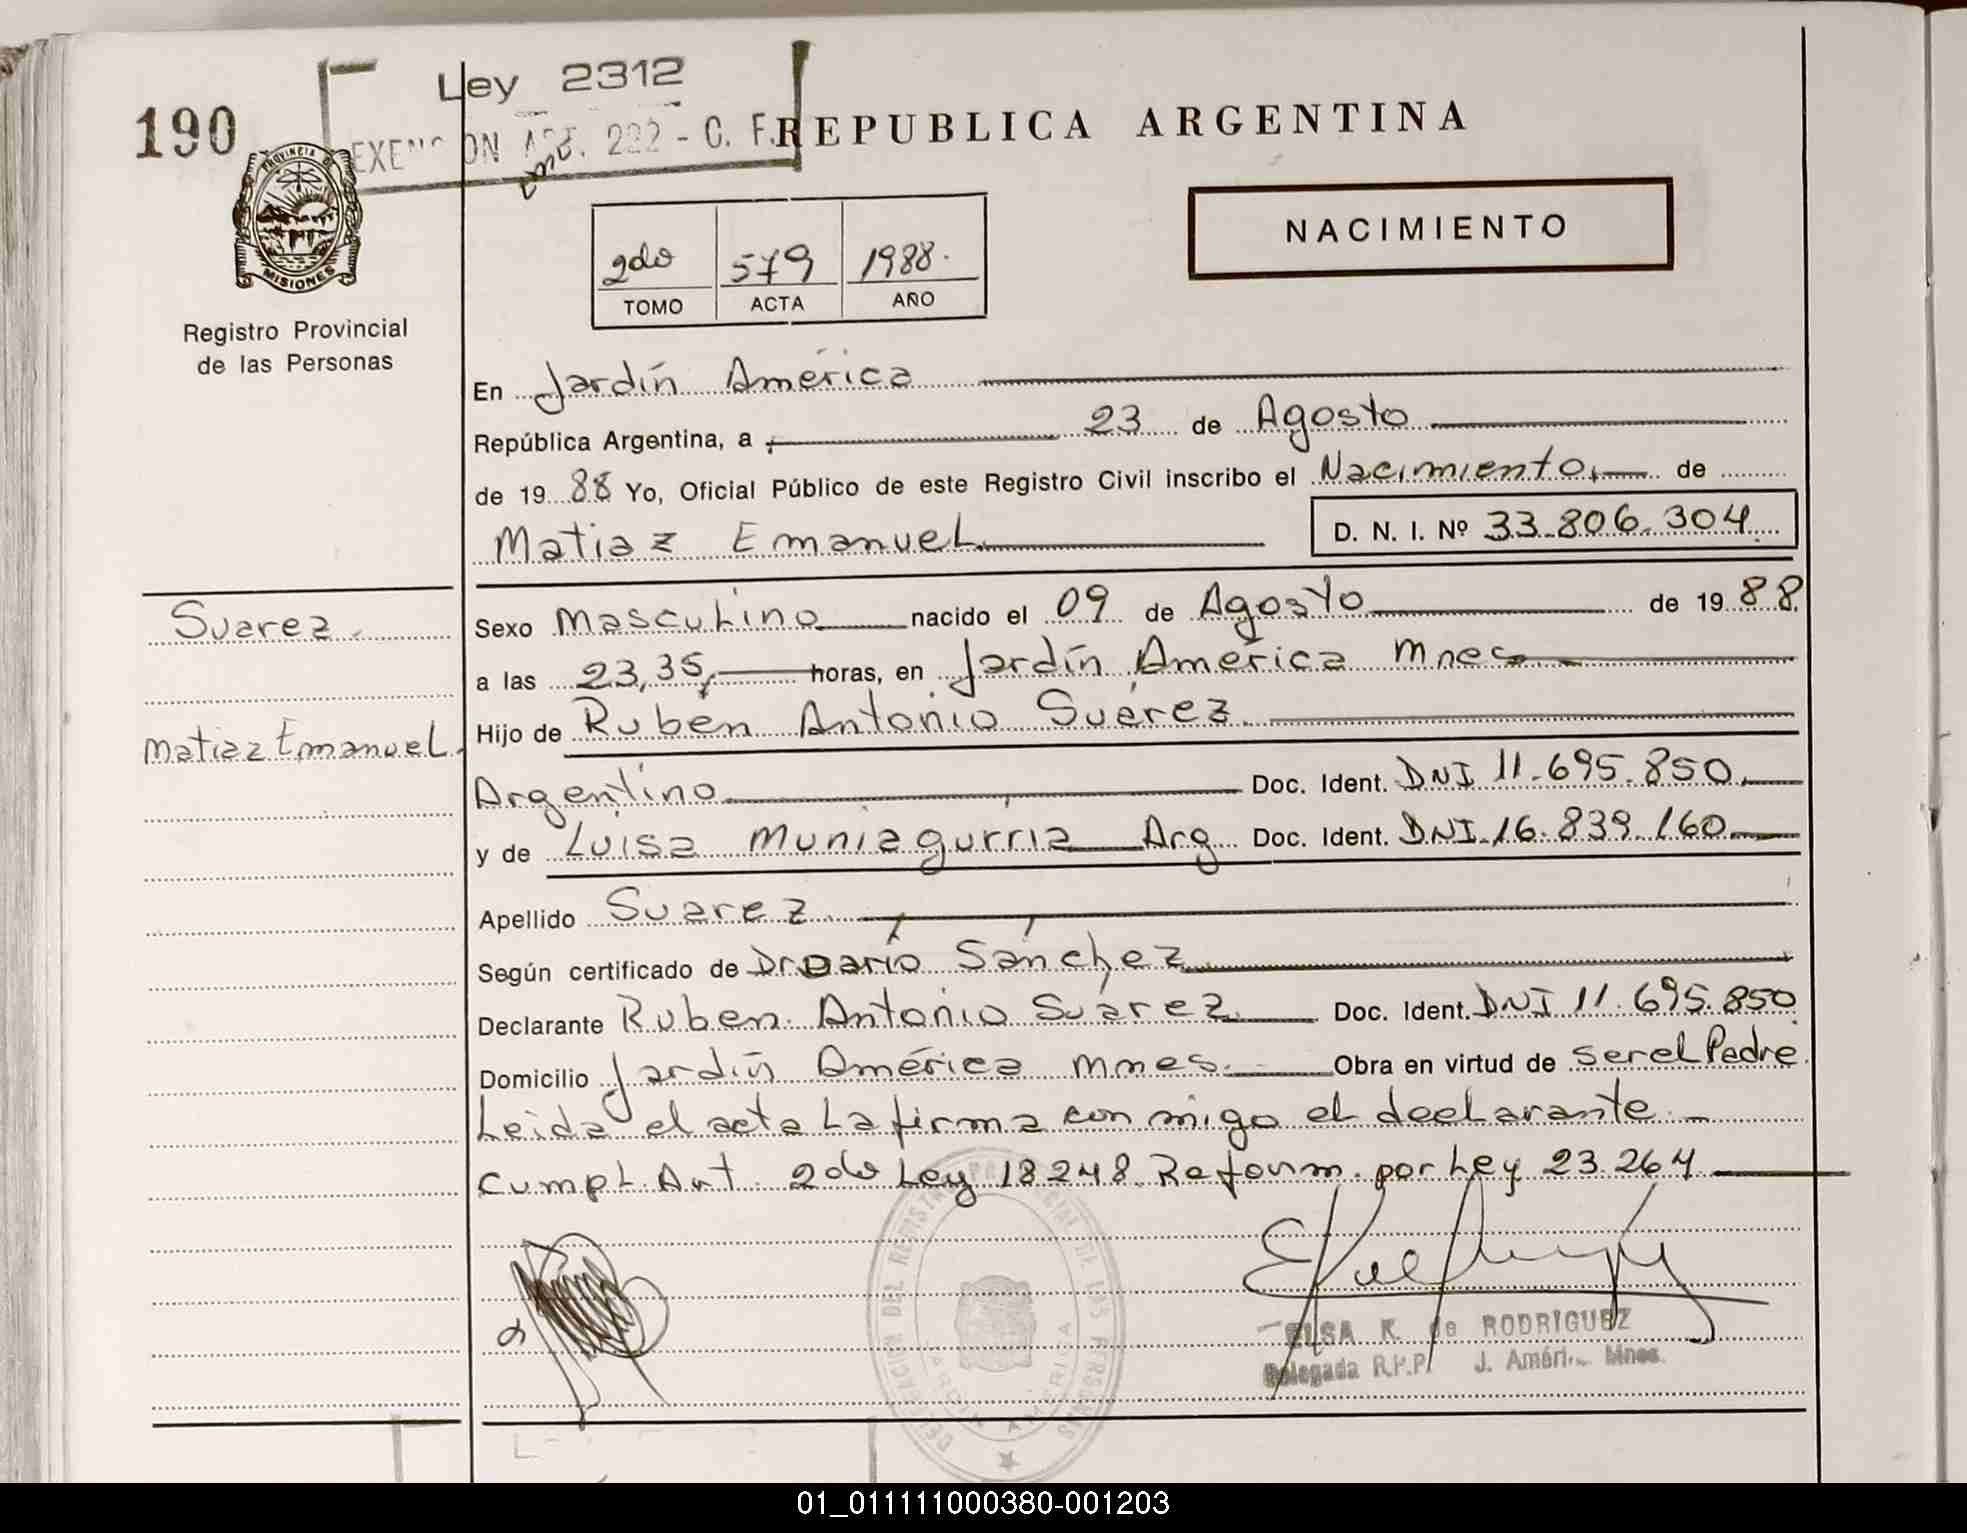 190
Ley 2312
EXENCION ART. 222 - C. F.
REPUBLICA ARGENTINA
PROVINCIA DE
MISIONES
Registro Provincial
de las Personas
2do 579 1988.
TOMO ACTA AÑO
NACIMIENTO
En Jardín América
República Argentina, a 23 de Agosto
de 19 88 Yo, Oficial Público de este Registro Civil inscribo el Nacimiento de
Matiaz Emanuel D. N. I. Nº 33.806.304
Suarez
Matiaz Emanuel
Sexo Masculino nacido el 09 de Agosto de 19 88
a las 23,35 horas, en Jardín América Mnes
Hijo de Rubén Antonio Suárez
Argentino Doc. Ident. DNI 11.695.850
y de Luisa Muniagurria Arg Doc. Ident. DNI 16.839.160
Apellido Suarez
Según certificado de Dr Dario Sánchez
Declarante Ruben Antonio Suárez Doc. Ident. DNI 11.695.850
Domicilio Jardín América Mnes. Obra en virtud de ser el Padre.
Leida el acta La firma con migo el declarante
Cumpl. Art. 2do Ley 18248 Reform. por Ley 23.264
DELEGACION DEL REGISTRO PROVINCIAL DE LAS PERSONAS
JARDIN AMERICA
ELSA K. de RODRIGUEZ
Delegada R.P.P. J. Améri. Mnes.
01_011111000380-001203